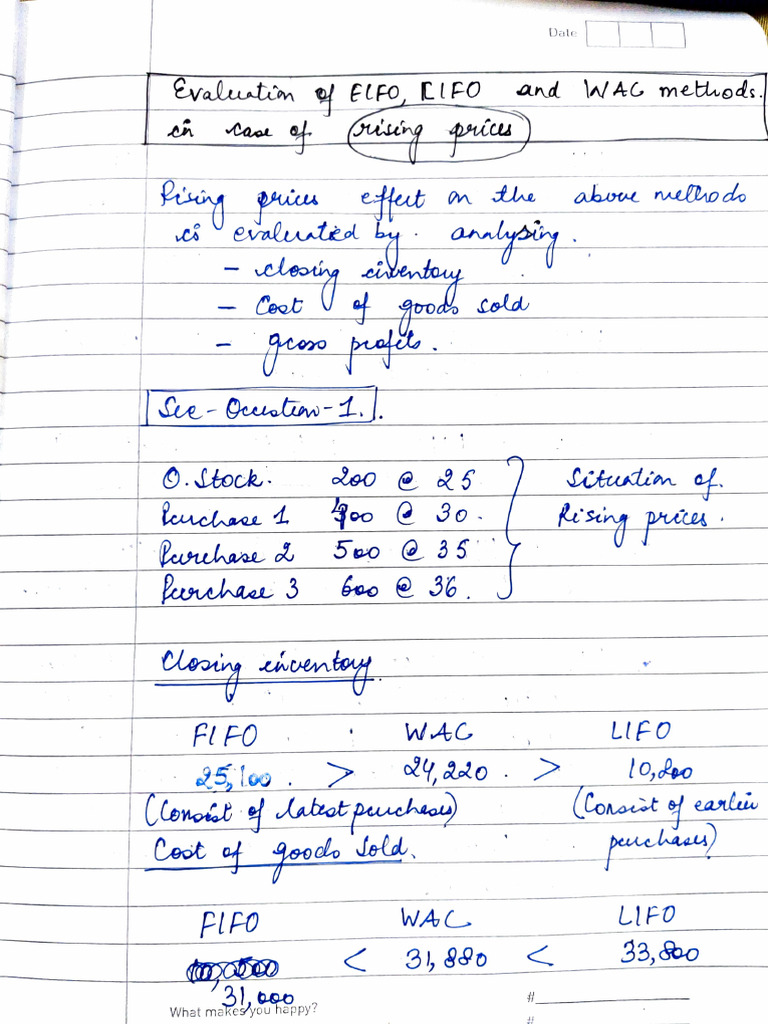 Date
Evaluation of FIFO, LIFO and WAC methods.
in case of rising prices
Rising prices effect on the above methods
is evaluated by. analysing.
- closing inventory
- Cost of goods sold
- gross profits.
See-Question-1.
O. Stock. 200 @ 25 Situation of.
Purchase 1 400 @ 30. Rising prices.
Purchase 2 500 @ 35
Purchase 3 600 @ 36.
Closing inventory.
FIFO WAC LIFO
25,100. > 24,220. > 10,200
(Consist of latest purchases) (Consist of earlier
Cost of goods sold. purchases)
FIFO WAC LIFO
< 31,880 < 33,800
31,000
What makes you happy? #
#